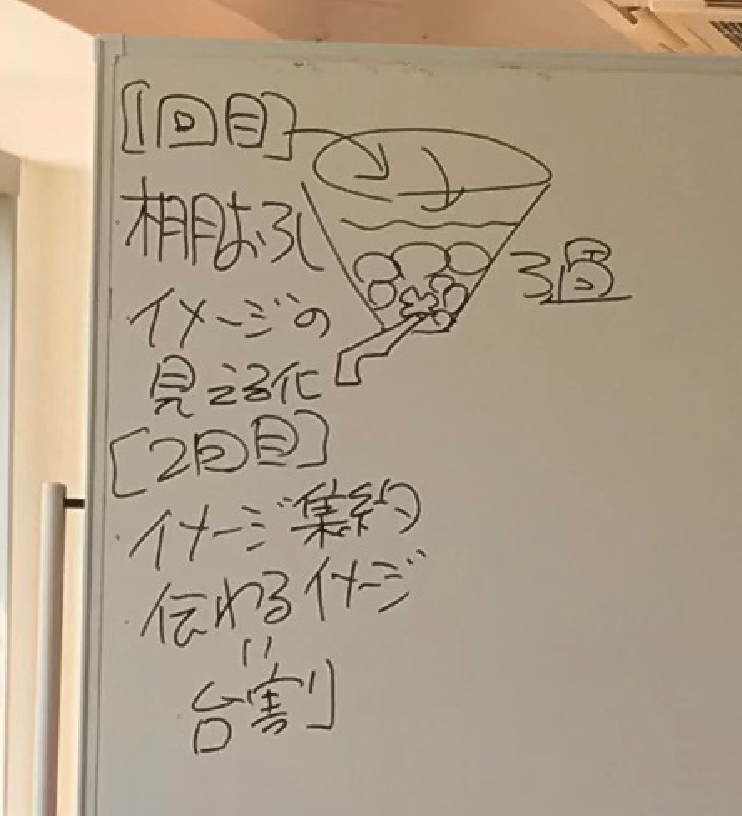 [1回目]
棚おろし
イメージの
見える化
3回
[2回目]
イメージ集約
伝わるイメージ
〃
台割